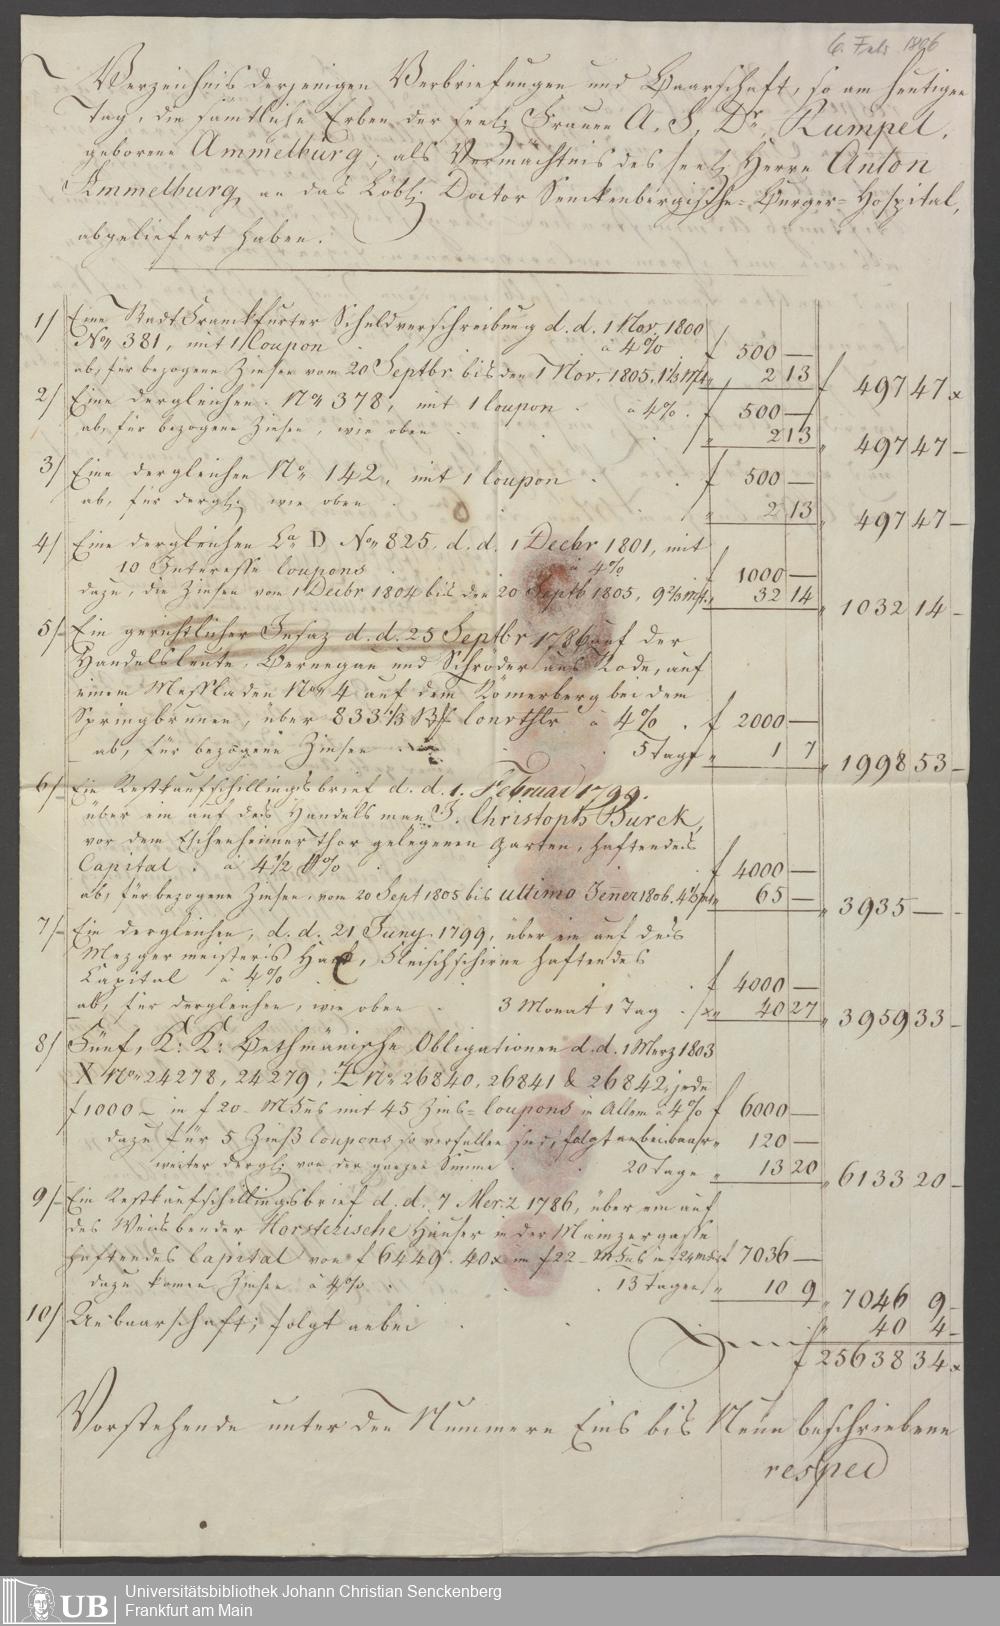 6. Feb 1806
Verzeichnis derjenigen Verbriefungen und Baarschaft, so am heutigen
Tag, die sämtliche Erben der seel: Frauen A. S. Dr. Rumpel,
geborene Ammelburg, als Vermächtnis des seel: Herrn Anton
Ammelburg, an das Löbl: Doctor Senckenbergische-Burger-Hospital,
abgeliefert haben.
1/ Eine Stadt Franckfurter Schuldverschreibung d. d. 1 Nov. 1800
No 381, mit 1 Coupon à 4% f 500 —
ab, für bezogene Zinsen vom 20 Septbr bis den 1 Nov. 1805. 1⅓ Mt " 2 13 f 497 47 x
2/ Eine dergleichen. No 378, mit 1 Coupon . à 4% . f 500 —
ab, für bezogene Zinsen, wie oben . . " 2 13 " 497 47 —
3/ Eine dergleichen No 142, mit 1 Coupon . . f 500 —
ab, für dergl: wie oben . " 2 13 " 497 47 —
4/ Eine dergleichen La D No 825. d. d. 1 Decbr 1801, mit
10 Interesse Coupons . à 4% f 1000 —
dazu, die Zinsen vom 1 Decbr 1804 bis den 20 Septb 1805, 9⅔ Mt. " 32 14 " 1032 14 —
5/ Ein gerichtlicher Insaz d. d. 25 Septbr 1786 auf der
Handelsleute, Bernegau und Schröder aus Rode, auf
einem Messladen No 4 auf dem Römerberg bei dem
Springbrunen, über 833⅓ Convthlr à 4% . f 2000 —
ab, für bezogene Zinsen . 5 Tage " 1 7 " 1998 53 —
6/ Ein Restkaufschillingsbrief d. d. 1. Februar 1799.
über ein auf des Handelsman J. Christoph Burck,
vor dem Eschenheimer Thor gelegenen Garten, haftendes
Capital . à 4½ % . f 4000 —
ab, für bezogene Zinsen, vom 20 Sept 1805 bis ultimo Jener 1806. 4⅓ Mt " 65 — " 3935 — —
7/ Ein dergleichen, d. d. 21 Juny 1799, über ein auf des
Mezgermeisters Hack, Fleischschirne haftendes
Capital à 4% . f 4000 —
ab, für dergleichen, wie oben . 3 Monat 1 Tag . " 40 27 " 3959 33 —
8/ Fünf, K: K: Bethmänische Obligationen d. d. 1 Merz 1803
X No 24278, 24279, Z No 26840, 26841 & 26842, jede
f 1000 — in f 20 — Mfus mit 45 Zins-Coupons in Allem à 4% f 6000 —
dazu für 5 Zinß Coupons so verfallen sind, folgt anbei baar " 120 —
weiter dergl: von der ganzen Summe . 20 Tage " 13 20 " 6133 20 —
9/ Ein Restkaufschillingsbrief d. d. 7 Merz 1786, über ein auf
des Weisbender Horsterische Häuser in der Mainzergasse
haftendes Capital von f 6449. 40 x im f 22 — Mfus in f 24 f 7036 —
dazu komen Zinsen à 4% . 13 Tagen " 10 9 " 7046 9 —
10/ An baarschaft, folgt anbei . . " 40 4 —
f 25638 34 x
Vorstehende unter den Nummern Eins bis Neun beschriebene
respec
UB Universitätsbibliothek Johann Christian Senckenberg
Frankfurt am Main